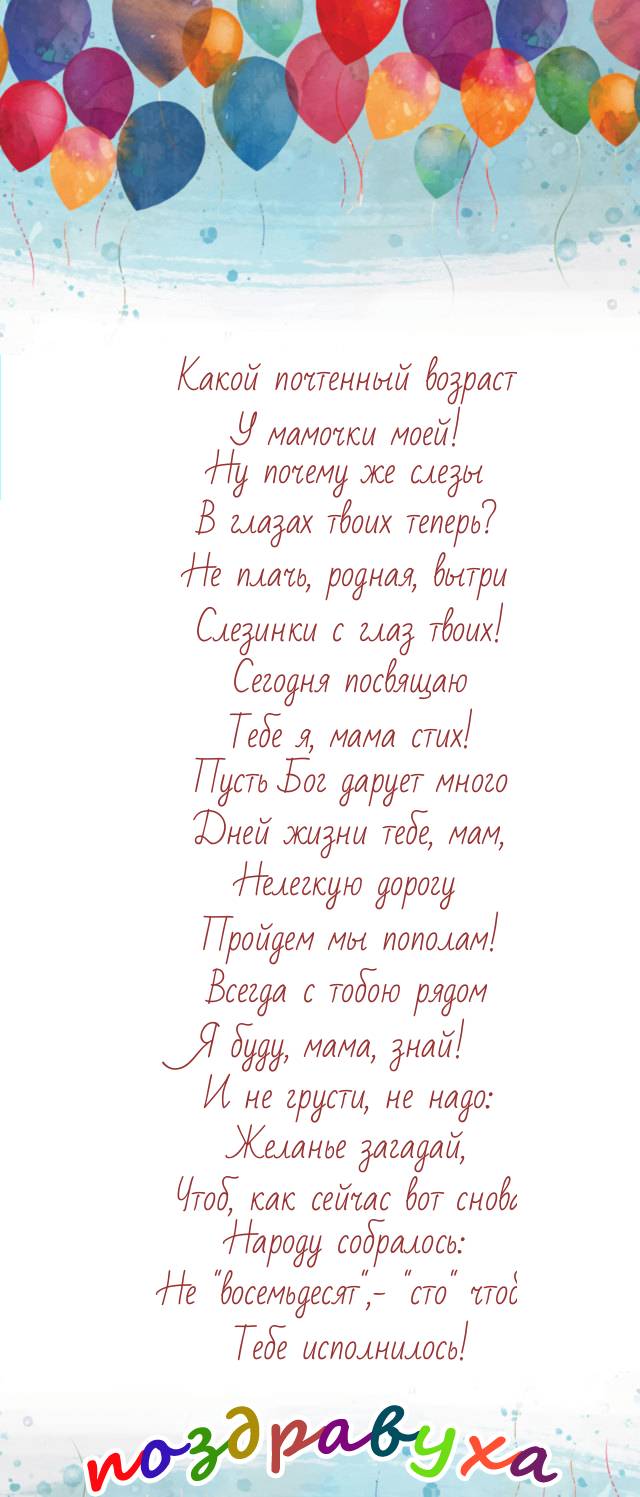 Какой почтенный возраст
У мамочки моей!
Ну почему же слезы
В глазах твоих теперь?
Не плачь, родная, вытри
Слезинки с глаз твоих!
Сегодня посвящаю
Тебе я, мама стих!
Пусть Бог дарует много
Дней жизни тебе, мам,
Нелегкую дорогу
Пройдем мы пополам!
Всегда с тобою рядом
Я буду, мама, знай!
И не грусти, не надо:
Желанье загадай,
Чтоб, как сейчас вот снова
Народу собралось:
Не "восемьдесят",- "сто" чтоб
Тебе исполнилось!
поздравуха